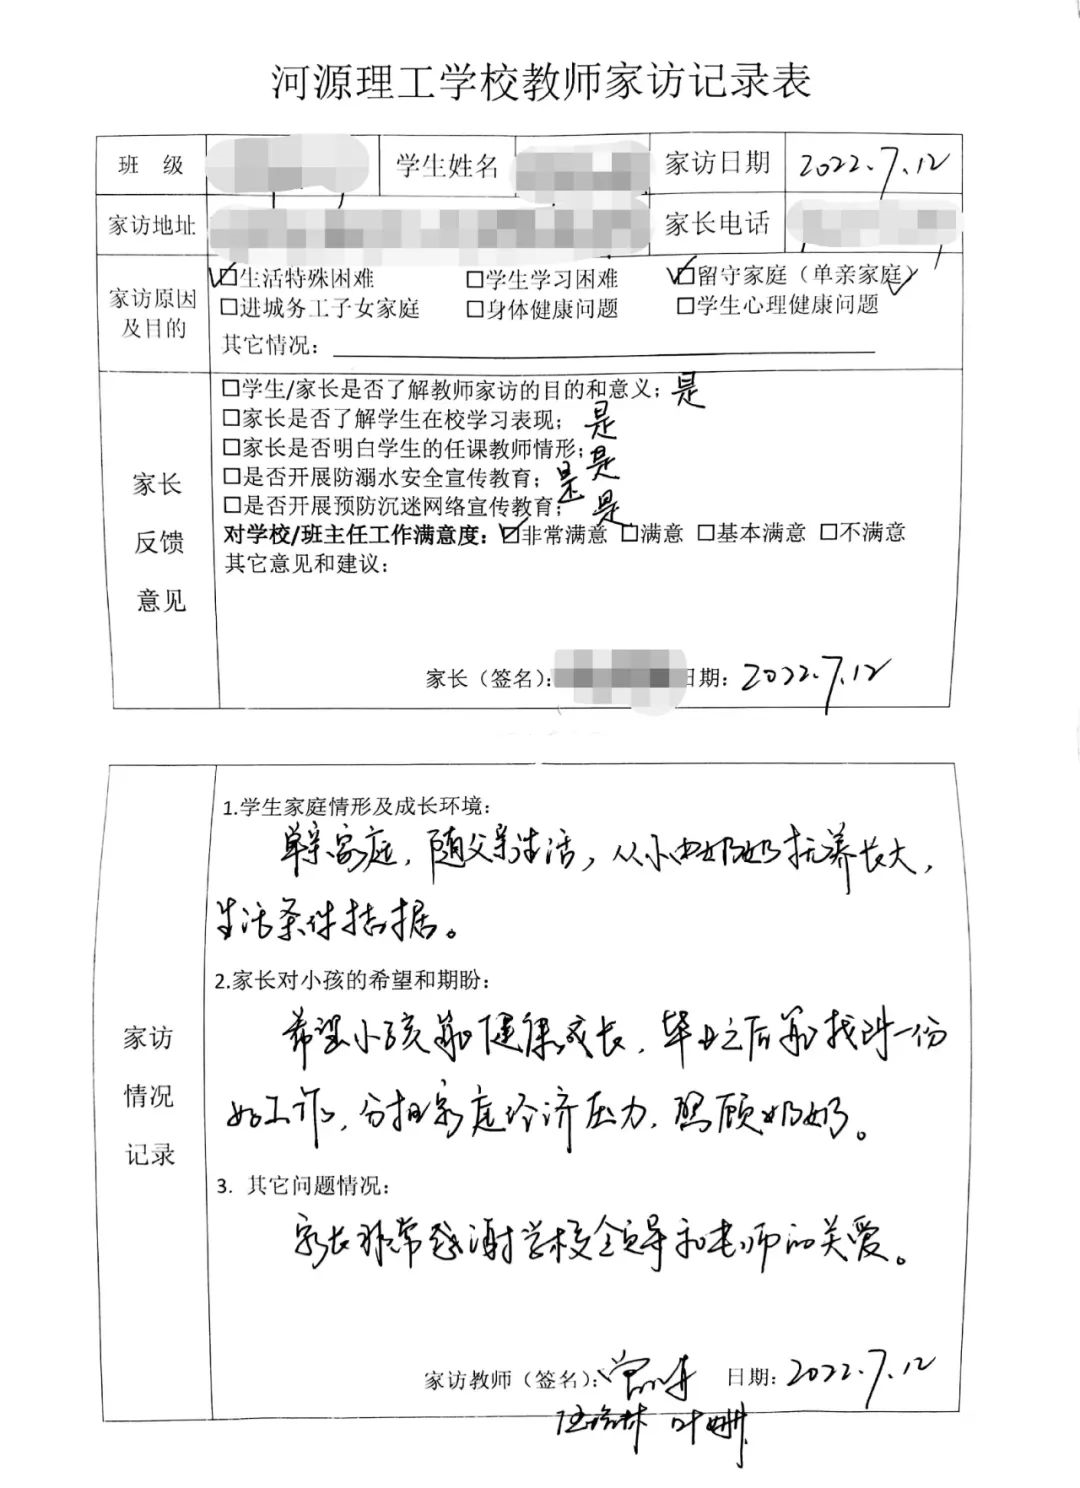 河源理工学校教师家访记录表
班 级 学生姓名 家访日期 2022.7.12
家访地址 家长电话
家访原因及目的
☑生活特殊困难 □学生学习困难 ☑留守家庭（单亲家庭✓）
□进城务工子女家庭 □身体健康问题 □学生心理健康问题
其它情况：
家长反馈意见
□学生/家长是否了解教师家访的目的和意义；是
□家长是否了解学生在校学习表现；是
□家长是否明白学生的任课教师情形；是
□是否开展防溺水安全宣传教育；是
□是否开展预防沉迷网络宣传教育；是
对学校/班主任工作满意度：☑非常满意 □满意 □基本满意 □不满意
其它意见和建议：
家长（签名）： 日期：2022.7.12
家访情况记录
1.学生家庭情形及成长环境：
单亲家庭，随父亲生活，从小由奶奶抚养长大，
生活条件拮据。
2.家长对小孩的希望和期盼：
希望小孩能健康成长，毕业之后能找到一份
好工作，分担家庭经济压力，照顾奶奶。
3. 其它问题情况：
家长非常感谢学校领导和老师的关爱。
家访教师（签名）： 日期：2022.7.12
叶姗